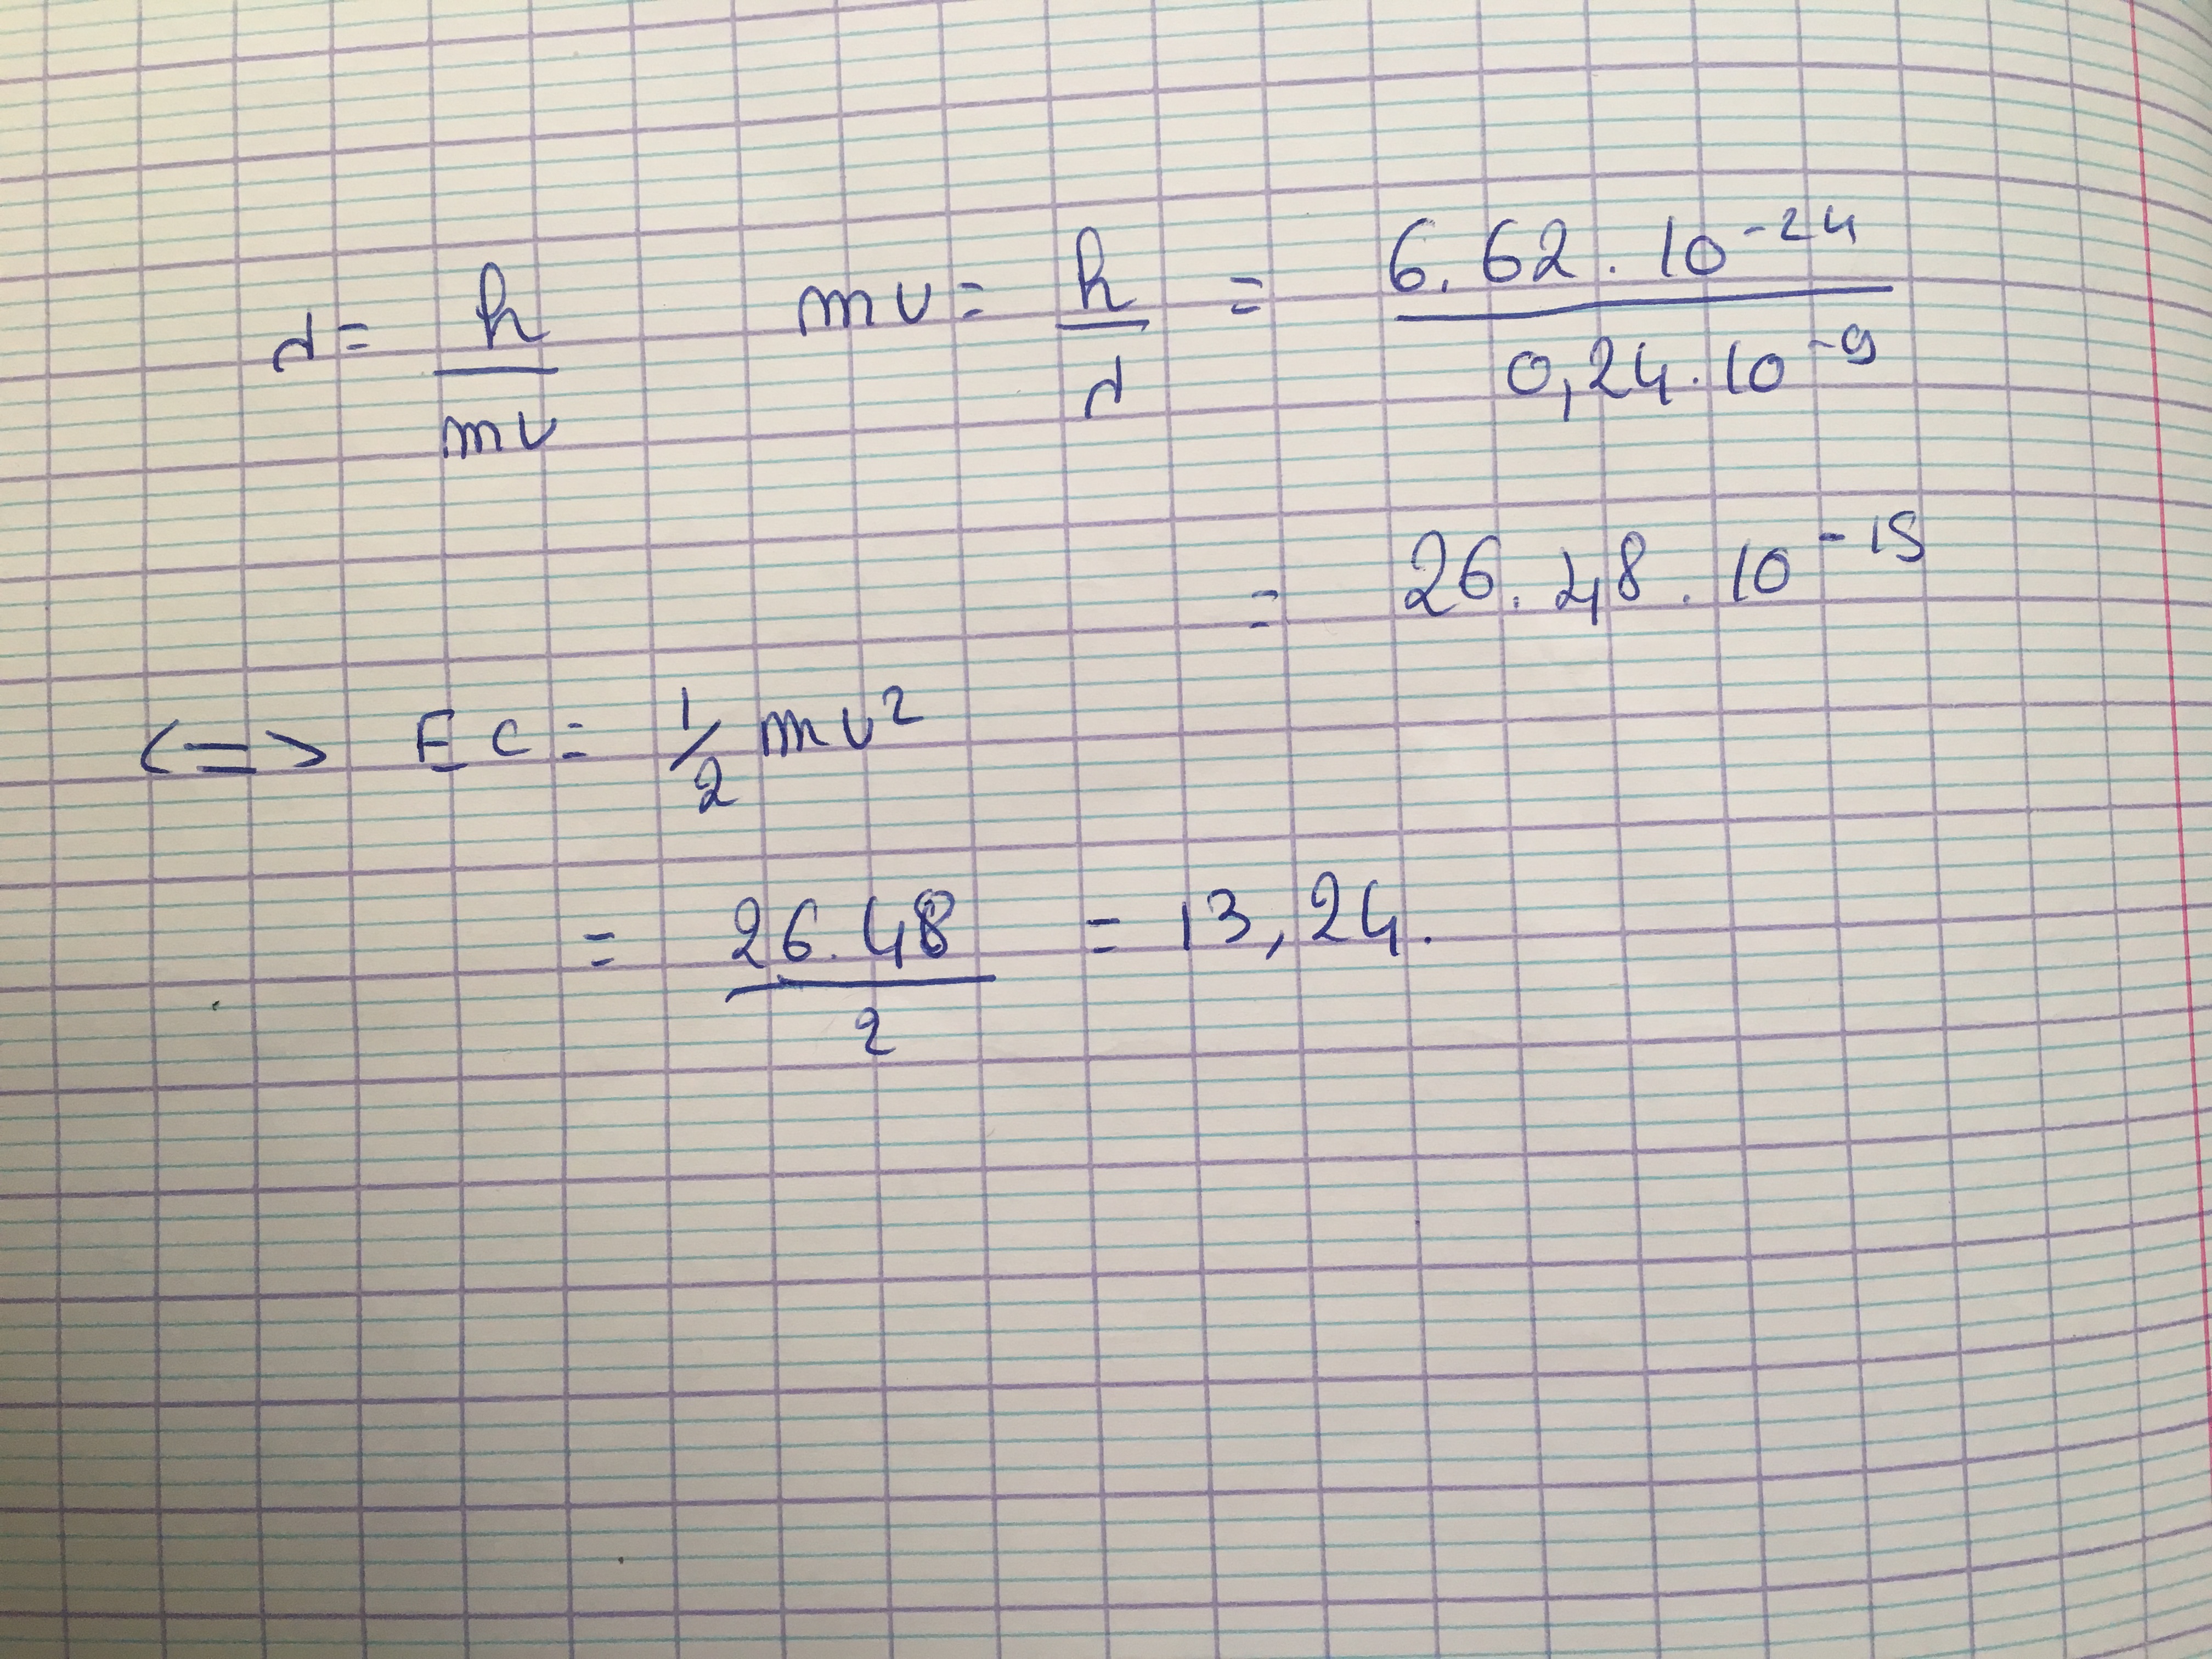 λ = h/mv mv = h/λ = 6.62 . 10^-24 / 0,24 . 10^-9
= 26.48 . 10^-15
<=> EC = 1/2 mv²
= 26.48/2 = 13,24.